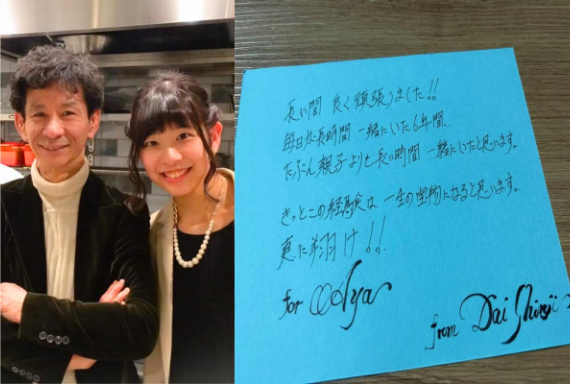 長い間 良く頑張りました!!
毎日長時間 一緒にいた6年間、
たぶん親子よりも長い時間 一緒にいたと思います。
きっとこの経験は 一生の宝物になると思います。
更に羽ばたけ!!
for Aya
from Dai Shinji